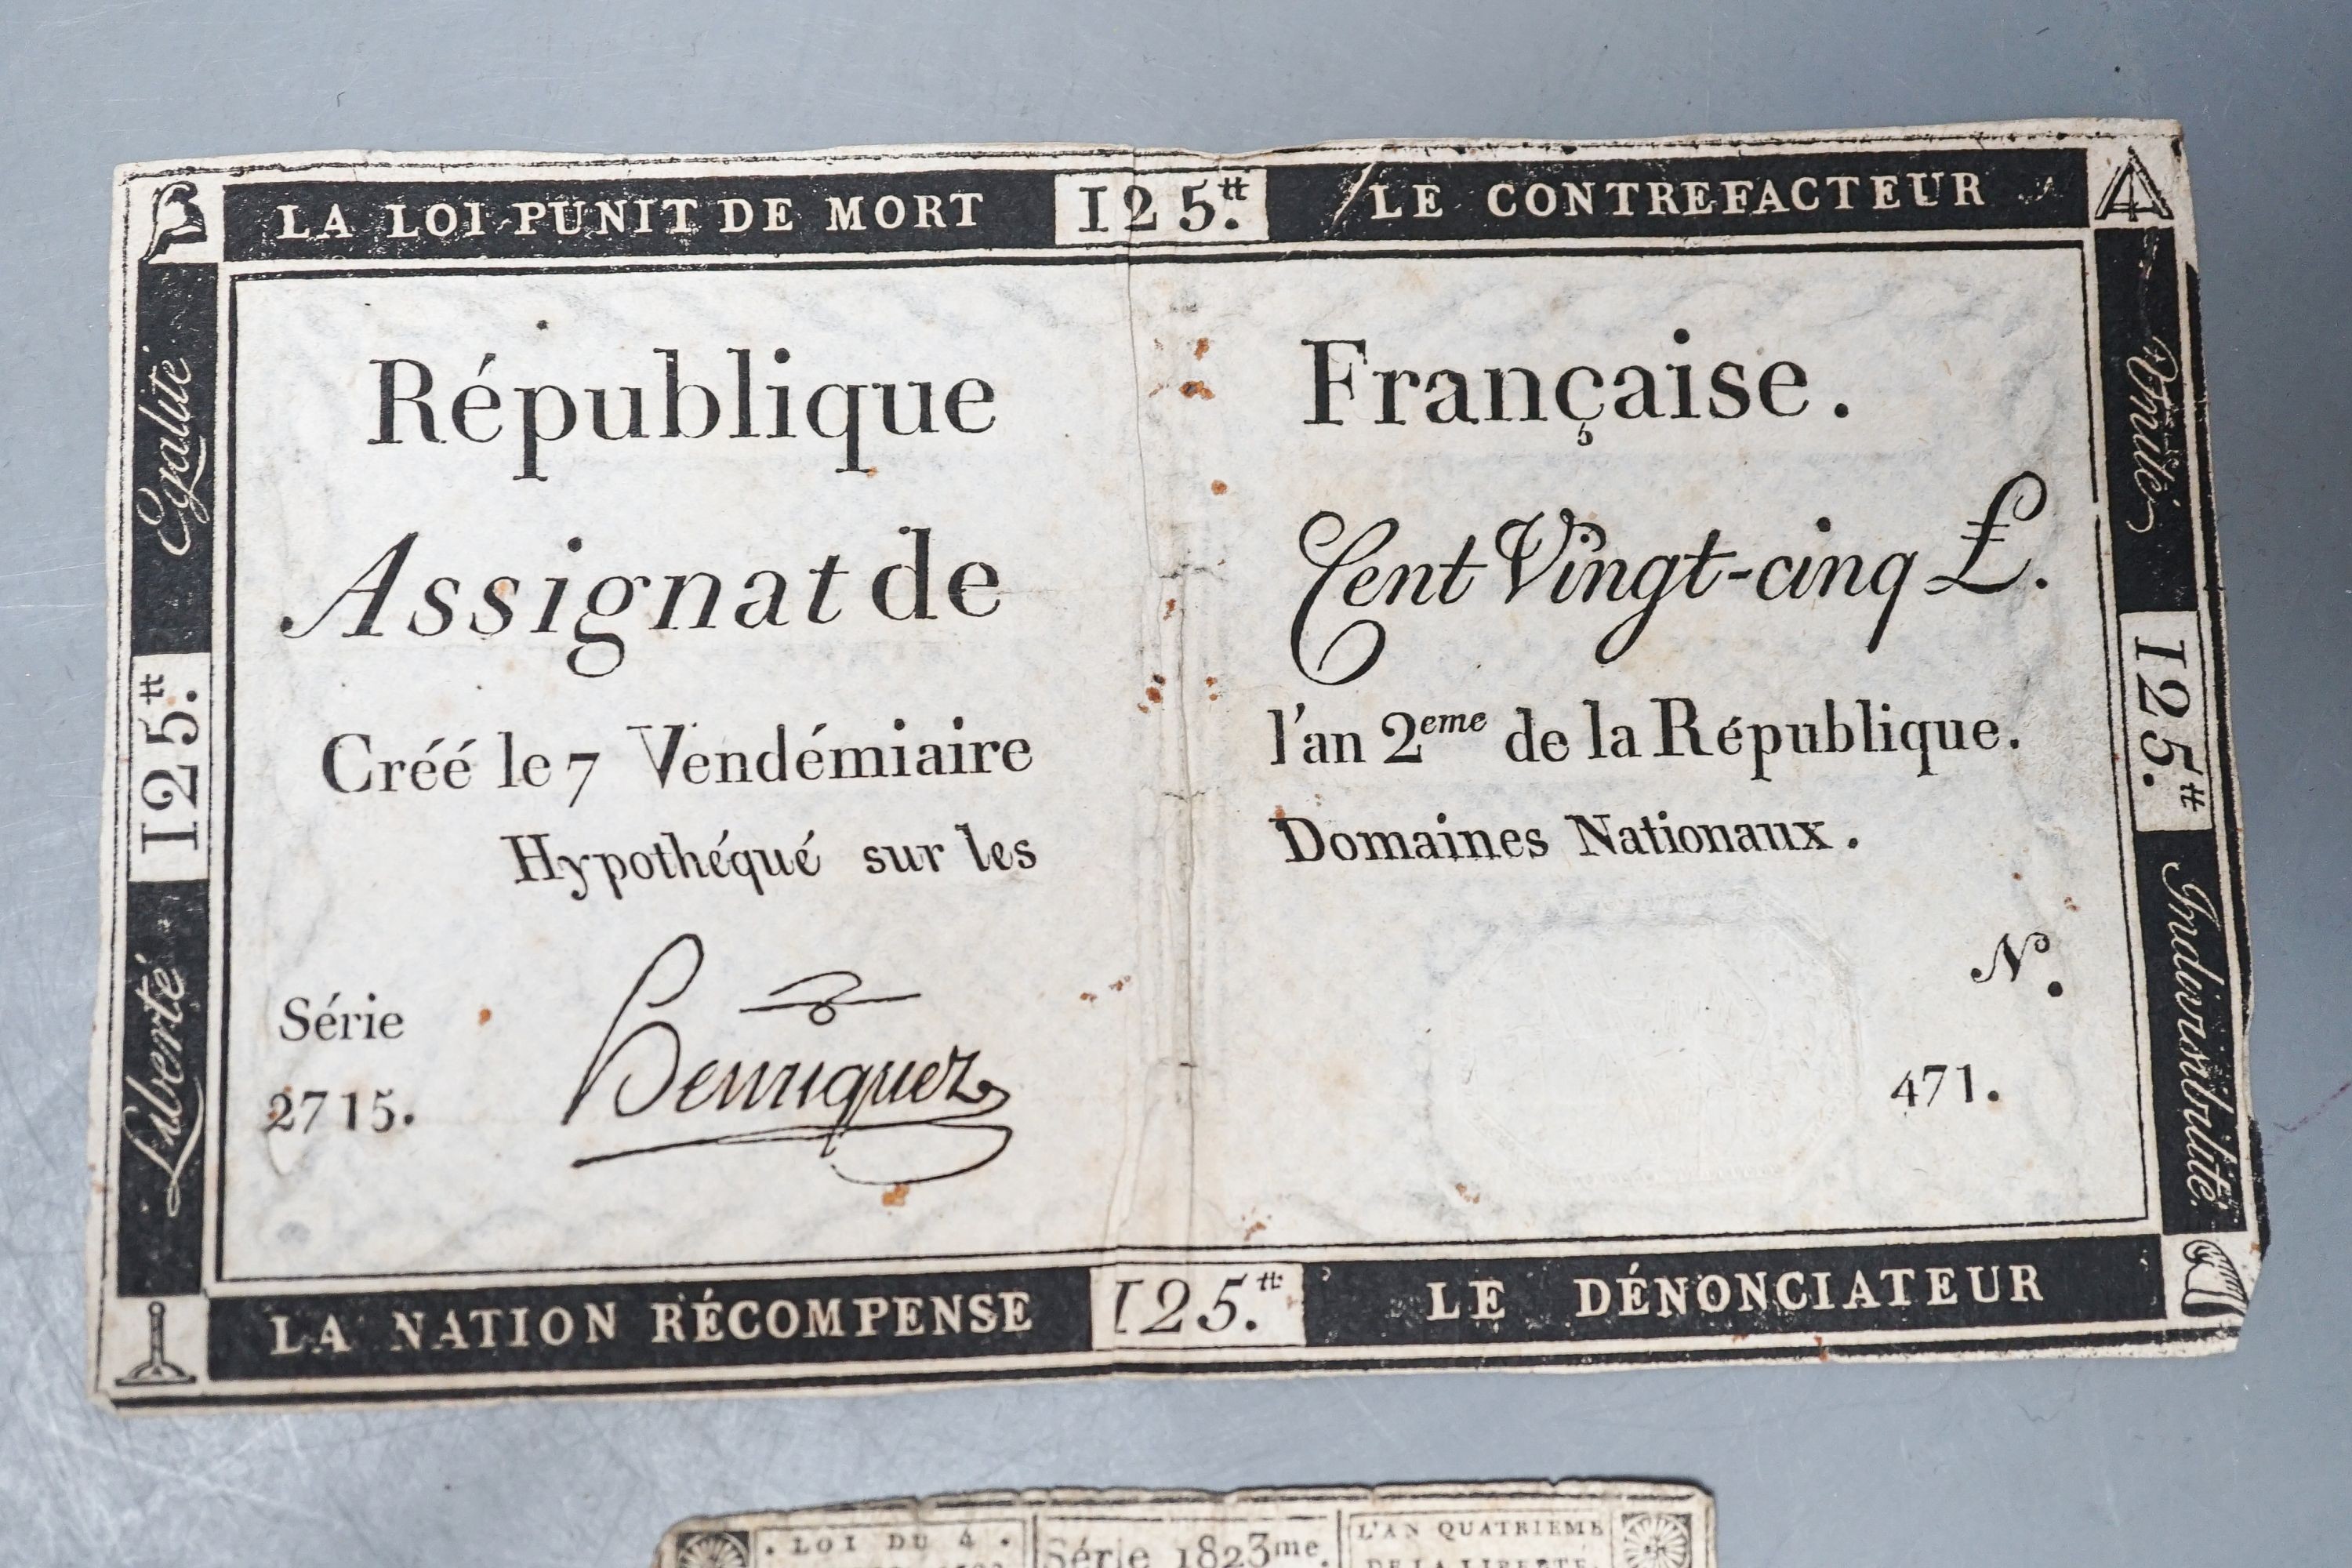 LA LOI PUNIT DE MORT 125.tt LE CONTREFACTEUR
Egalité
125.tt
Liberté
Unité
125.tt
Indivisibilité.
République Française.
Assignat de Cent Vingt-cinq £.
Créé le 7 Vendémiaire l'an 2eme de la République.
Hypothéqué sur les Domaines Nationaux.
Série
2715.
Henriquez
N.
471.
LA NATION RÉCOMPENSE 125.tt LE DÉNONCIATEUR
. LOI DU 4 .
Série 1823me.
L'AN QUATRIEME
DE LA LIBERTÉ.